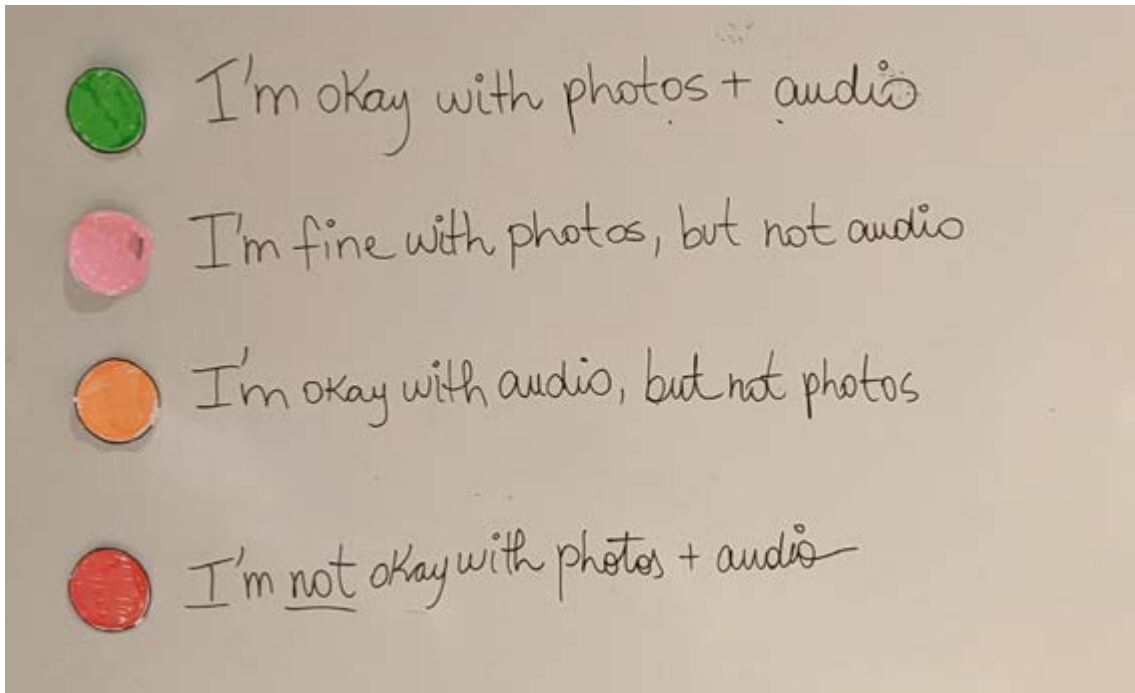 I'm okay with photos + audio
I'm fine with photos, but not audio
I'm okay with audio, but not photos
I'm not okay with photos + audio